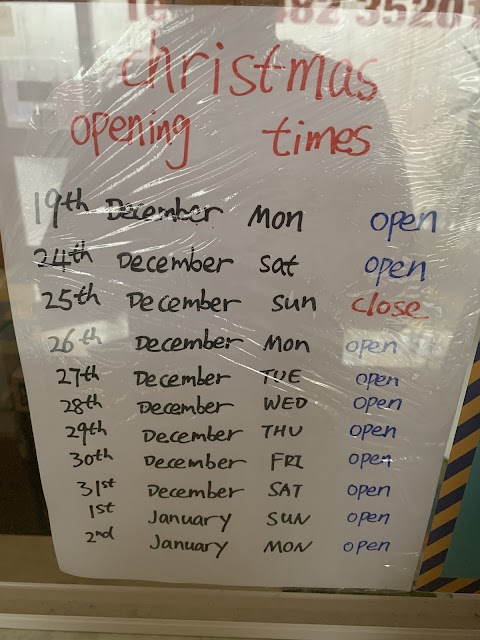 christmas
opening times
19th December Mon open
24th December sat open
25th December sun close
26th December Mon open
27th December TUE open
28th December WED open
29th December THU open
30th December FRI open
31st December SAT open
1st January SUN open
2nd January MON open